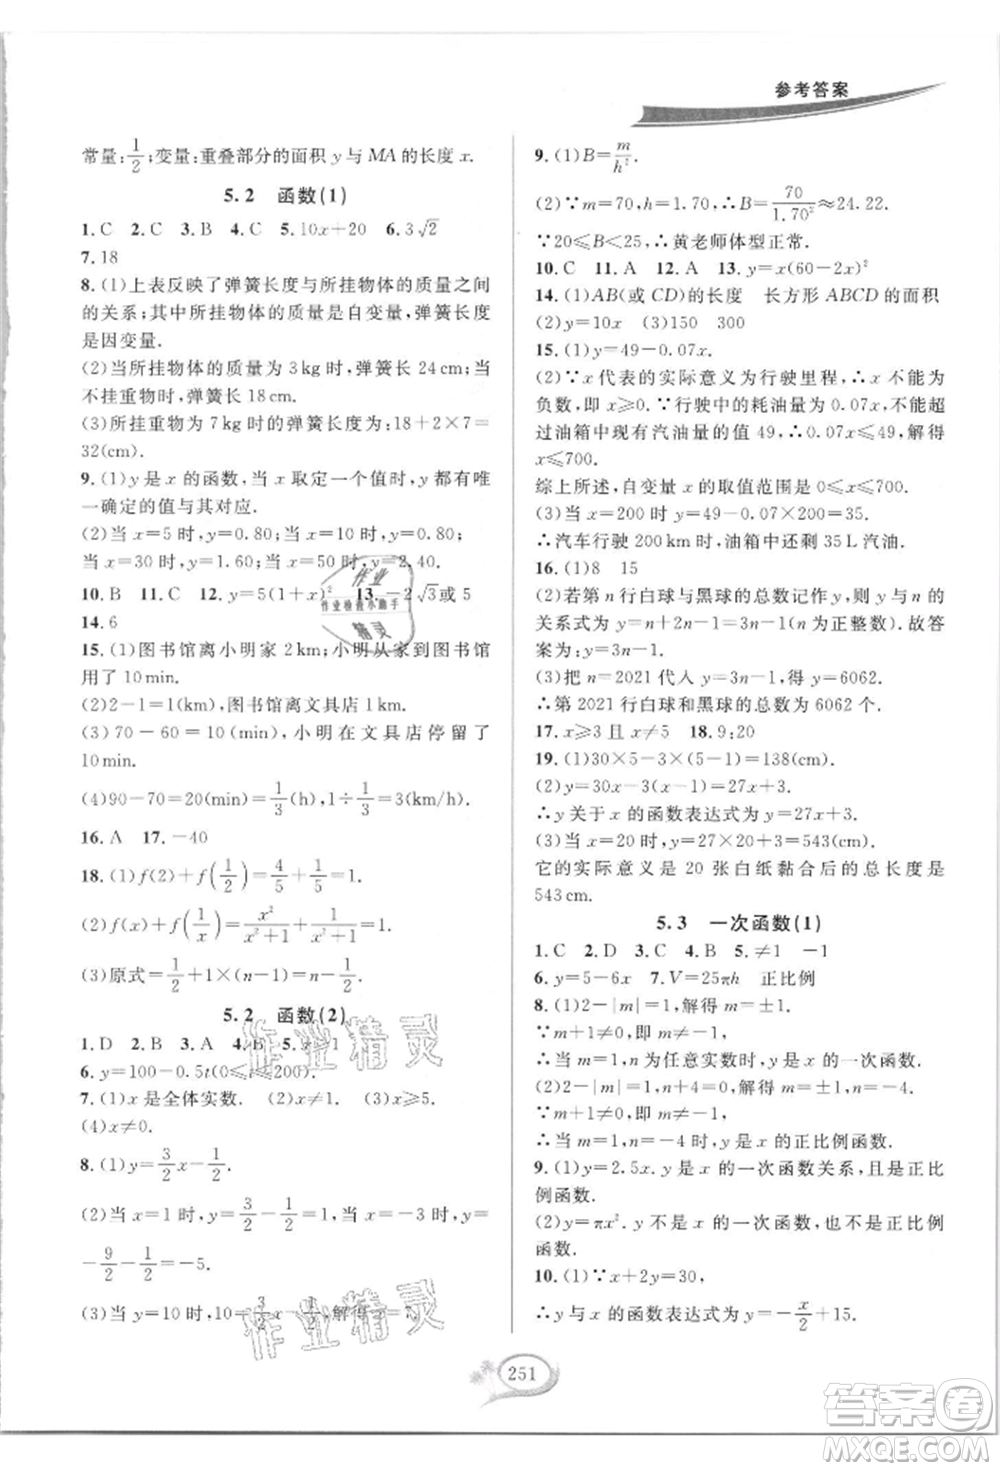 参考答案
常量:1/2;变量:重叠部分的面积 y 与 MA 的长度 x.
5.2 函数(1)
1.C 2.D 3.B 4.C 5.10x+20 6.3√2
7.18
8.(1)上表反映了弹簧长度与所挂物体的质量之间
的关系;其中所挂物体的质量是自变量,弹簧长度
是因变量.
(2)当所挂物体的质量为 3 kg 时,弹簧长 24 cm;当
不挂重物时,弹簧长 18 cm.
(3)所挂重物为 7 kg 时的弹簧长度为:18+2×7=
32(cm).
9.(1)y 是 x 的函数,当 x 取定一个值时,y 都有唯
一确定的值与其对应.
(2)当 x=5 时,y=0.80;当 x=10 时,y=0.80;
当 x=30 时,y=1.60;当 x=50 时,y=2.40.
10.B 11.C 12.y=5(1+x)² 13.-2√3或 5
14.6
15.(1)图书馆离小明家 2 km;小明从家到图书馆
用了 10 min.
(2)2-1=1(km),图书馆离文具店 1 km.
(3)70-60=10(min),小明在文具店停留了
10 min.
(4)90-70=20(min)=1/3(h),1÷1/3=3(km/h).
16.A 17.-40
18.(1)f(2)+f(1/2)=4/5+1/5=1.
(2)f(x)+f(1/x)=x²/(x²+1)+1/(x²+1)=1.
(3)原式=1/2+1×(n-1)=n-1/2.
5.2 函数(2)
1.D 2.B 3.A 4.B 5.x>1
6.y=100-0.5t(0≤t≤200).
7.(1)x 是全体实数. (2)x≠1. (3)x≥5.
(4)x≠0.
8.(1)y=3/2x-1/2.
(2)当 x=1 时,y=3/2-1/2=1,当 x=-3 时,y=
-9/2-1/2=-5.
(3)当 y=10 时,10=3/2x-1/2,解得 x=7.
9.(1)B=m/h².
(2)∵m=70,h=1.70,∴B=70/1.70²≈24.22.
∵20≤B<25,∴黄老师体型正常.
10.C 11.A 12.A 13.y=x(60-2x)²
14.(1)AB(或 CD)的长度 长方形 ABCD 的面积
(2)y=10x (3)150 300
15.(1)y=49-0.07x.
(2)∵x 代表的实际意义为行驶里程,∴x 不能为
负数,即 x≥0.∵行驶中的耗油量为 0.07x,不能超
过油箱中现有汽油量的值 49,∴0.07x≤49,解得
x≤700.
综上所述,自变量 x 的取值范围是 0≤x≤700.
(3)当 x=200 时 y=49-0.07×200=35.
∴汽车行驶 200 km 时,油箱中还剩 35 L 汽油.
16.(1)8 15
(2)若第 n 行白球与黑球的总数记作 y,则 y 与 n
的关系式为 y=n+2n-1=3n-1(n 为正整数).故答
案为:y=3n-1.
(3)把 n=2021 代入 y=3n-1,得 y=6062.
∴第 2021 行白球和黑球的总数为 6062 个.
17.x≥3 且 x≠5 18.9:20
19.(1)30×5-3×(5-1)=138(cm).
(2)y=30x-3(x-1)=27x+3.
∴y 关于 x 的函数表达式为 y=27x+3.
(3)当 x=20 时,y=27×20+3=543(cm).
它的实际意义是 20 张白纸黏合后的总长度是
543 cm.
5.3 一次函数(1)
1.C 2.D 3.C 4.B 5.≠1 -1
6.y=5-6x 7.V=25πh 正比例
8.(1)2-|m|=1,解得 m=±1.
∵m+1≠0,即 m≠-1,
∴当 m=1,n 为任意实数时,y 是 x 的一次函数.
(2)2-|m|=1,n+4=0,解得 m=±1,n=-4.
∵m+1≠0,即 m≠-1,
∴当 m=1,n=-4 时,y 是 x 的正比例函数.
9.(1)y=2.5x.y 与 x 的一次函数关系,且是正比
例函数.
(2)y=πx².y 不是 x 的一次函数,也不是正比例
函数.
10.(1)∵x+2y=30,
∴y 与 x 的函数表达式为 y=-x/2+15.
251
作业
作业检查小助手
精灵
作业精灵
作业精灵
答案卷
MXQE.COM